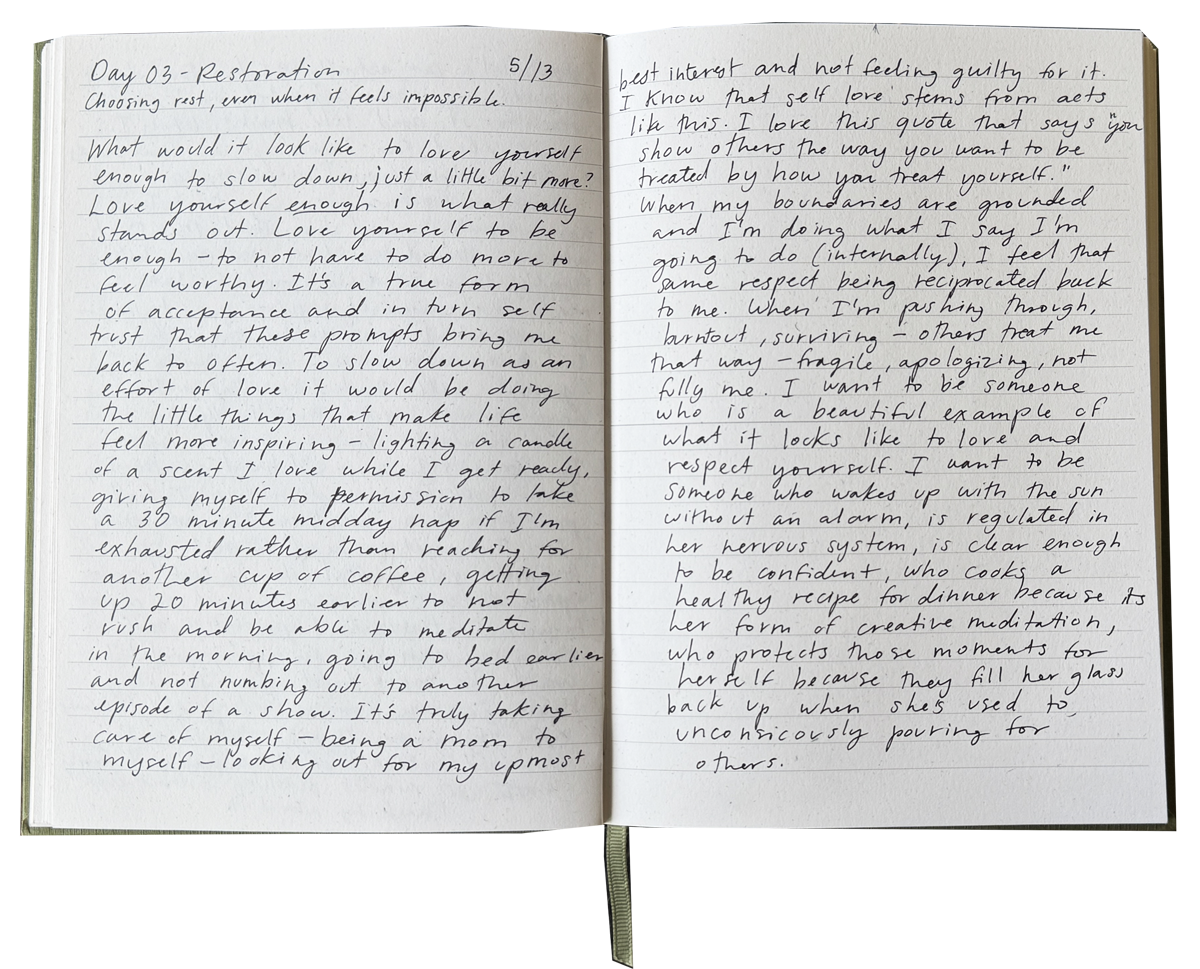 Day 03 - Restoration 5/13
Choosing rest, even when it feels impossible.
What would it look like to love yourself
enough to slow down, just a little bit more?
Love yourself enough is what really
stands out. Love yourself to be
enough - to not have to do more to
feel worthy. It's a true form
of acceptance and in turn self
trust that these prompts bring me
back to often. To slow down as an
effort of love it would be doing
the little things that make life
feel more inspiring - lighting a candle
of a scent I love while I get ready,
giving myself to permission to take
a 30 minute midday nap if I'm
exhausted rather than reaching for
another cup of coffee, getting
up 20 minutes earlier to not
rush and be able to meditate
in the morning, going to bed earlier
and not numbing out to another
episode of a show. It's truly taking
care of myself - being a mom to
myself - looking out for my upmost
best interest and not feeling guilty for it.
I know that self love stems from acts
like this. I love this quote that says "you
show others the way you want to be
treated by how you treat yourself."
When my boundaries are grounded
and I'm doing what I say I'm
going to do (internally), I feel that
same respect being reciprocated back
to me. When I'm pushing through,
burntout, surviving - others treat me
that way - fragile, apologizing, not
fully me. I want to be someone
who is a beautiful example of
what it looks like to love and
respect yourself. I want to be
someone who wakes up with the sun
without an alarm, is regulated in
her nervous system, is clear enough
to be confident, who cooks a
healthy recipe for dinner because its
her form of creative meditation,
who protects those moments for
herself because they fill her glass
back up when she's used to
unconsicously pouring for
others.